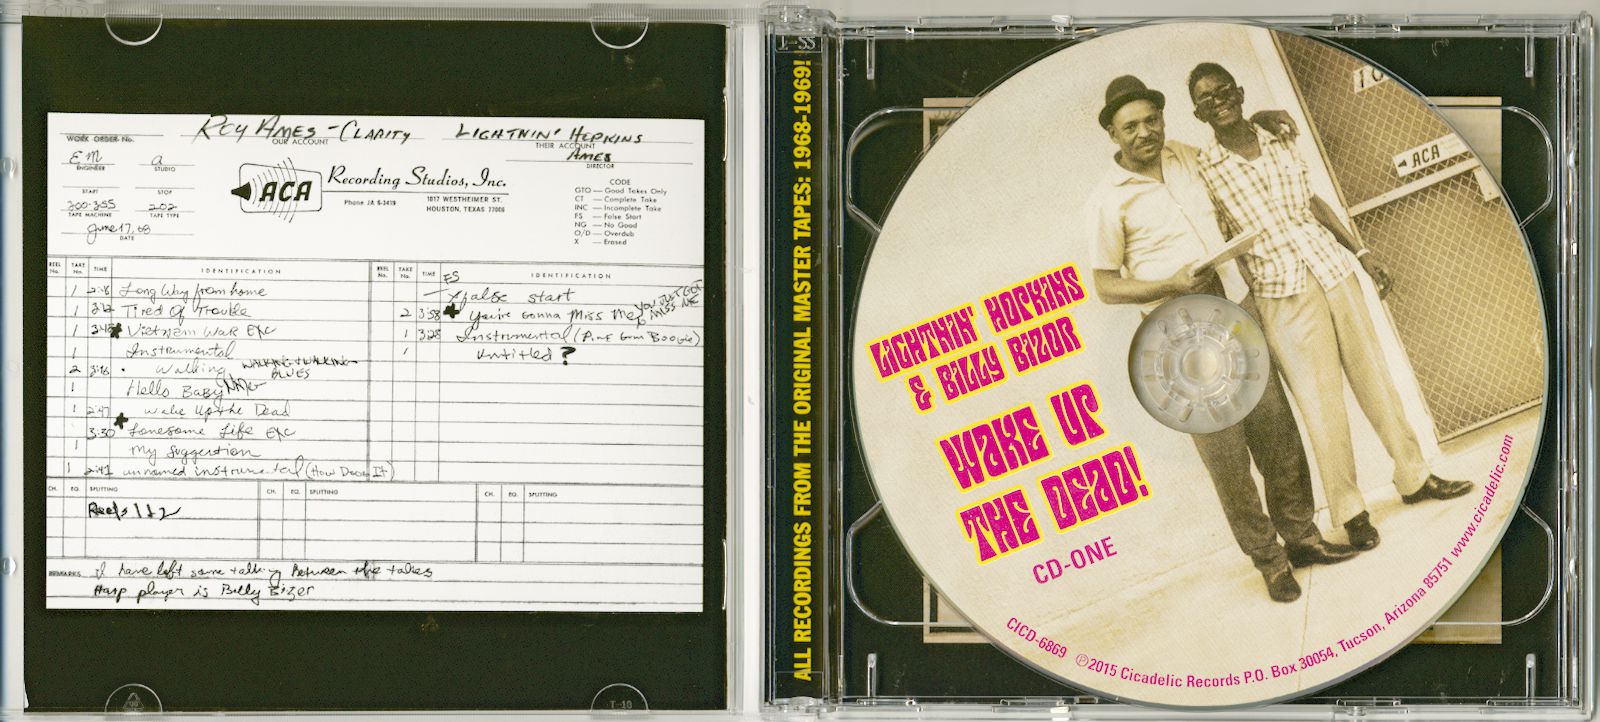 WORK ORDER No.
ROY AMES - CLARITY
OUR ACCOUNT
LIGHTNIN' HOPKINS
THEIR ACCOUNT
AMES
DIRECTOR
EM
ENGINEER
a
STUDIO
START
STOP
300-355
TAPE MACHINE
202
TAPE TYPE
June 17, 68
DATE
ACA
Recording Studios, Inc.
Phone JA 6-3419
1017 WESTHEIMER ST.
HOUSTON, TEXAS 77006
CODE
GTO — Good Takes Only
CT — Complete Take
INC — Incomplete Take
FS — False Start
NG — No Good
O/D — Overdub
X — Erased
REEL No. TAKE No. TIME IDENTIFICATION
1 2:18 Long Way from home
1 3:12 Tired Of Trouble
1 3:45 Vietnam War Exc
1 Instrumental
2 3:16 . Walking WALKING + WALKING BLUES
1 Hello Baby
1 2:47 Wake Up the Dead
3:30 Lonesome Life Exc
1 My Suggestion
1 2:41 unnamed instrumental (How Does It)
REEL No. TAKE No. TIME IDENTIFICATION
FS
false start
2 3:58 You're Gonna Miss Me YOU JUST GOT TO MISS ME
1 3:28 Instrumental (P.nt Gum Boogie)
1 Untitled ?
CH. EQ. SPLITTING CH. EQ. SPLITTING CH. EQ. SPLITTING
Reels 1 & 2
REMARKS I have left some talking between the takes
Harp player is Billy Bizer
ALL RECORDINGS FROM THE ORIGINAL MASTER TAPES: 1968-1969!
ACA
LIGHTNIN' HOPKINS
& BILLY BIZOR
WAKE UP
THE DEAD!
CD-ONE
CICD-6869 ℗2015 Cicadelic Records P.O. Box 30054, Tucson, Arizona 85751 www.cicadelic.com